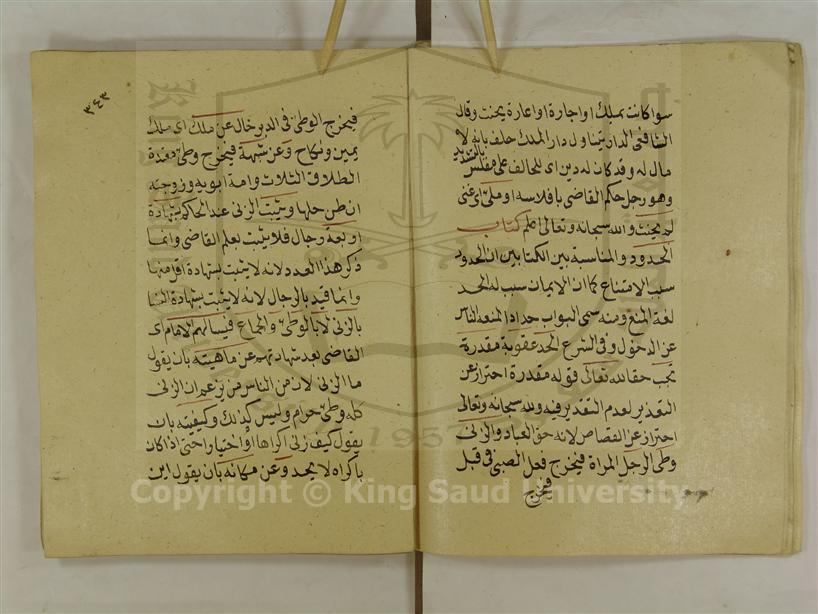 سوا كانت بملك او اجارة او اعارة يحنث وقال
الشافعى الدار يتناول دار الملك حلف بانه لا
مال له وقد كان له دين اى للحالف على مفلس
وهو رجل حكم القاضى بافلاسه او ملئ اى غنى
لم يحنث والله سبحانه وتعالى اعلم كتاب
الحدود والمناسبة بين الكتابين ان الحدود
سبب الامتناع كما ان الايمان سبب له الحد
لغة المنع ومنه سمى البواب حدادا لمنعه الناس
عن الدخول وفى الشرع الحد عقوبة مقدرة
تجب حقا لله تعالى قوله مقدرة احتراز عن
التعذير لعدم التقدير فيه ولله سبحانه وتعالى
احتراز عن القصاص لانه حق العباد والزنى
وطى الرجل المراة فيخرج فعل الصبى فى قبل
فيخرج
٣٤٣
فيخرج الوطى فى الدبر خال عن ملك اى ملك
يمين ونكاح وعن شبهة فيخرج وطى معتدة
الطلاق الثلاث وامة ابويه وزوجته
ان ظن حلها ويثبت الزنى عند الحاكم بشهادة
اربعة رجال فلا يثبت بعلم القاضى وانما
ذكر هذا العدد لانه لا يثبت بشهادة اقل منها
وانما قيد بالرجال لانه لا يثبت بشهادة النسا
بالزنى لا بالوطى والجماع فيسالهم الامام اى
القاضى بعد شهادتهم عن ماهيته بان يقول
ما الزنى لان من الناس من يزعم ان الزنى
كله وطى حرام وليس كذلك وكيفيته بان
يقول كيف زنى اكراها او اختيارا حتى اذا كان
باكراه لا يحد وعن مكانه بان يقول اين
Copyright © King Saud University
1957